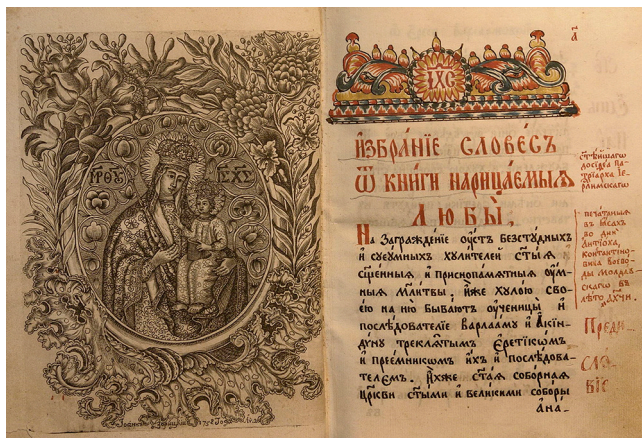 МРΘΥ
ІС ХС
а҃
ІХС
И҆ЗБРА́НЇЕ СЛОВЕ́СЪ
Ѿ КНИ́ГИ НАРИЦА́ЕМЫѦ
ЛЮБЫ̀,
На Загражде́нїе оу҆́стъ безсту́дныхъ
и҆ суеу́мныхъ хули́телей ст҃ы́ѧ
сщ҃е́нныѧ и҆ приснопа́мѧтныѧ оу҆́м-
ныѧ мл҃и́твы, и҆̀же хуло́ю сво-
е́ю на ню̀ быва́ютъ оу҆ченицы̀ и҆
послѣ́дователїе Варлаа́му и҆ А҆кїн-
ди́ну треклѧ́тымъ Е҆рети́кѡмъ
и҆ прее́мникѡмъ и҆́хъ и҆ послѣ́дова-
телемъ. И҆̀хже ст҃а́ѧ собо́рнаѧ
Цр҃ковь ст҃ы́ми и҆ вели́кими собо́ры
А҆на-
досїѳеа па-
трїа́рха Іе҆р-
лимскагѡ
печа́таныѧ
въ Ꙗ҆сахъ
во днѝ
Антїо́ха,
Константїно-
вича воево́-
ды Молдав-
скагѡ въ
лѣ́то
Преди-
сло-
вїе